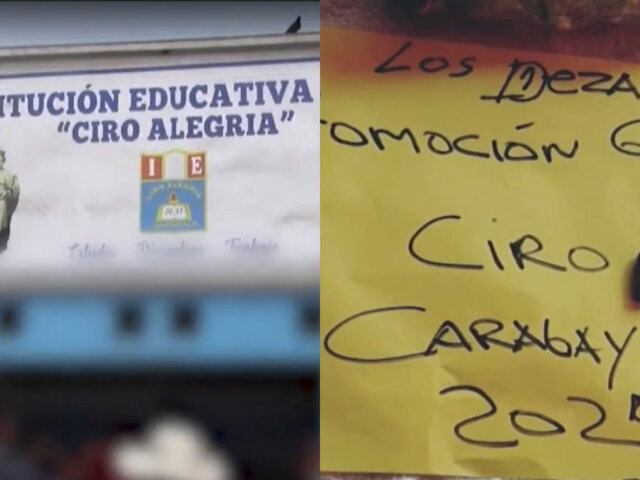 TITUCIÓN EDUCATIVA
"CIRO ALEGRIA"
I E
CIRO ALEGRIA
2037
Estudio Disciplina Trabajo
LOS DEZA
TOMOCIÓN
CIRO
CARABAY
202